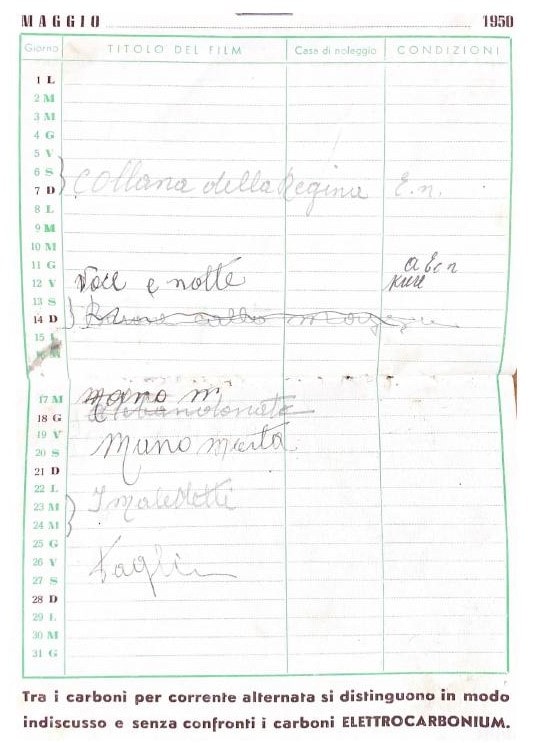 MAGGIO 1950
Giorno TITOLO DEL FILM Casa di noleggio CONDIZIONI
1 L
2 M
3 M
4 G
5 V
6 S
7 D Collana della Regina E.n.
8 L
9 M
10 M
11 G
12 V Voce e notte
13 S
14 D
15 L
16 M
17 M mano m
18 G
19 V
20 S Mano morta
21 D
22 L
23 M I maledetti
24 M
25 G
26 V
27 S Vagli
28 D
29 L
30 M
31 G
Tra i carboni per corrente alternata si distinguono in modo
indiscusso e senza confronti i carboni ELETTROCARBONIUM.